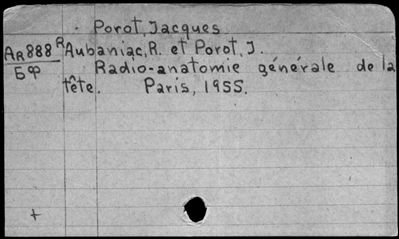 Porot, Jacques
AR888 R Aubaniac, R. et Porot, J.
БФ Radio-anatomie générale de la
tête. Paris, 1955.
+